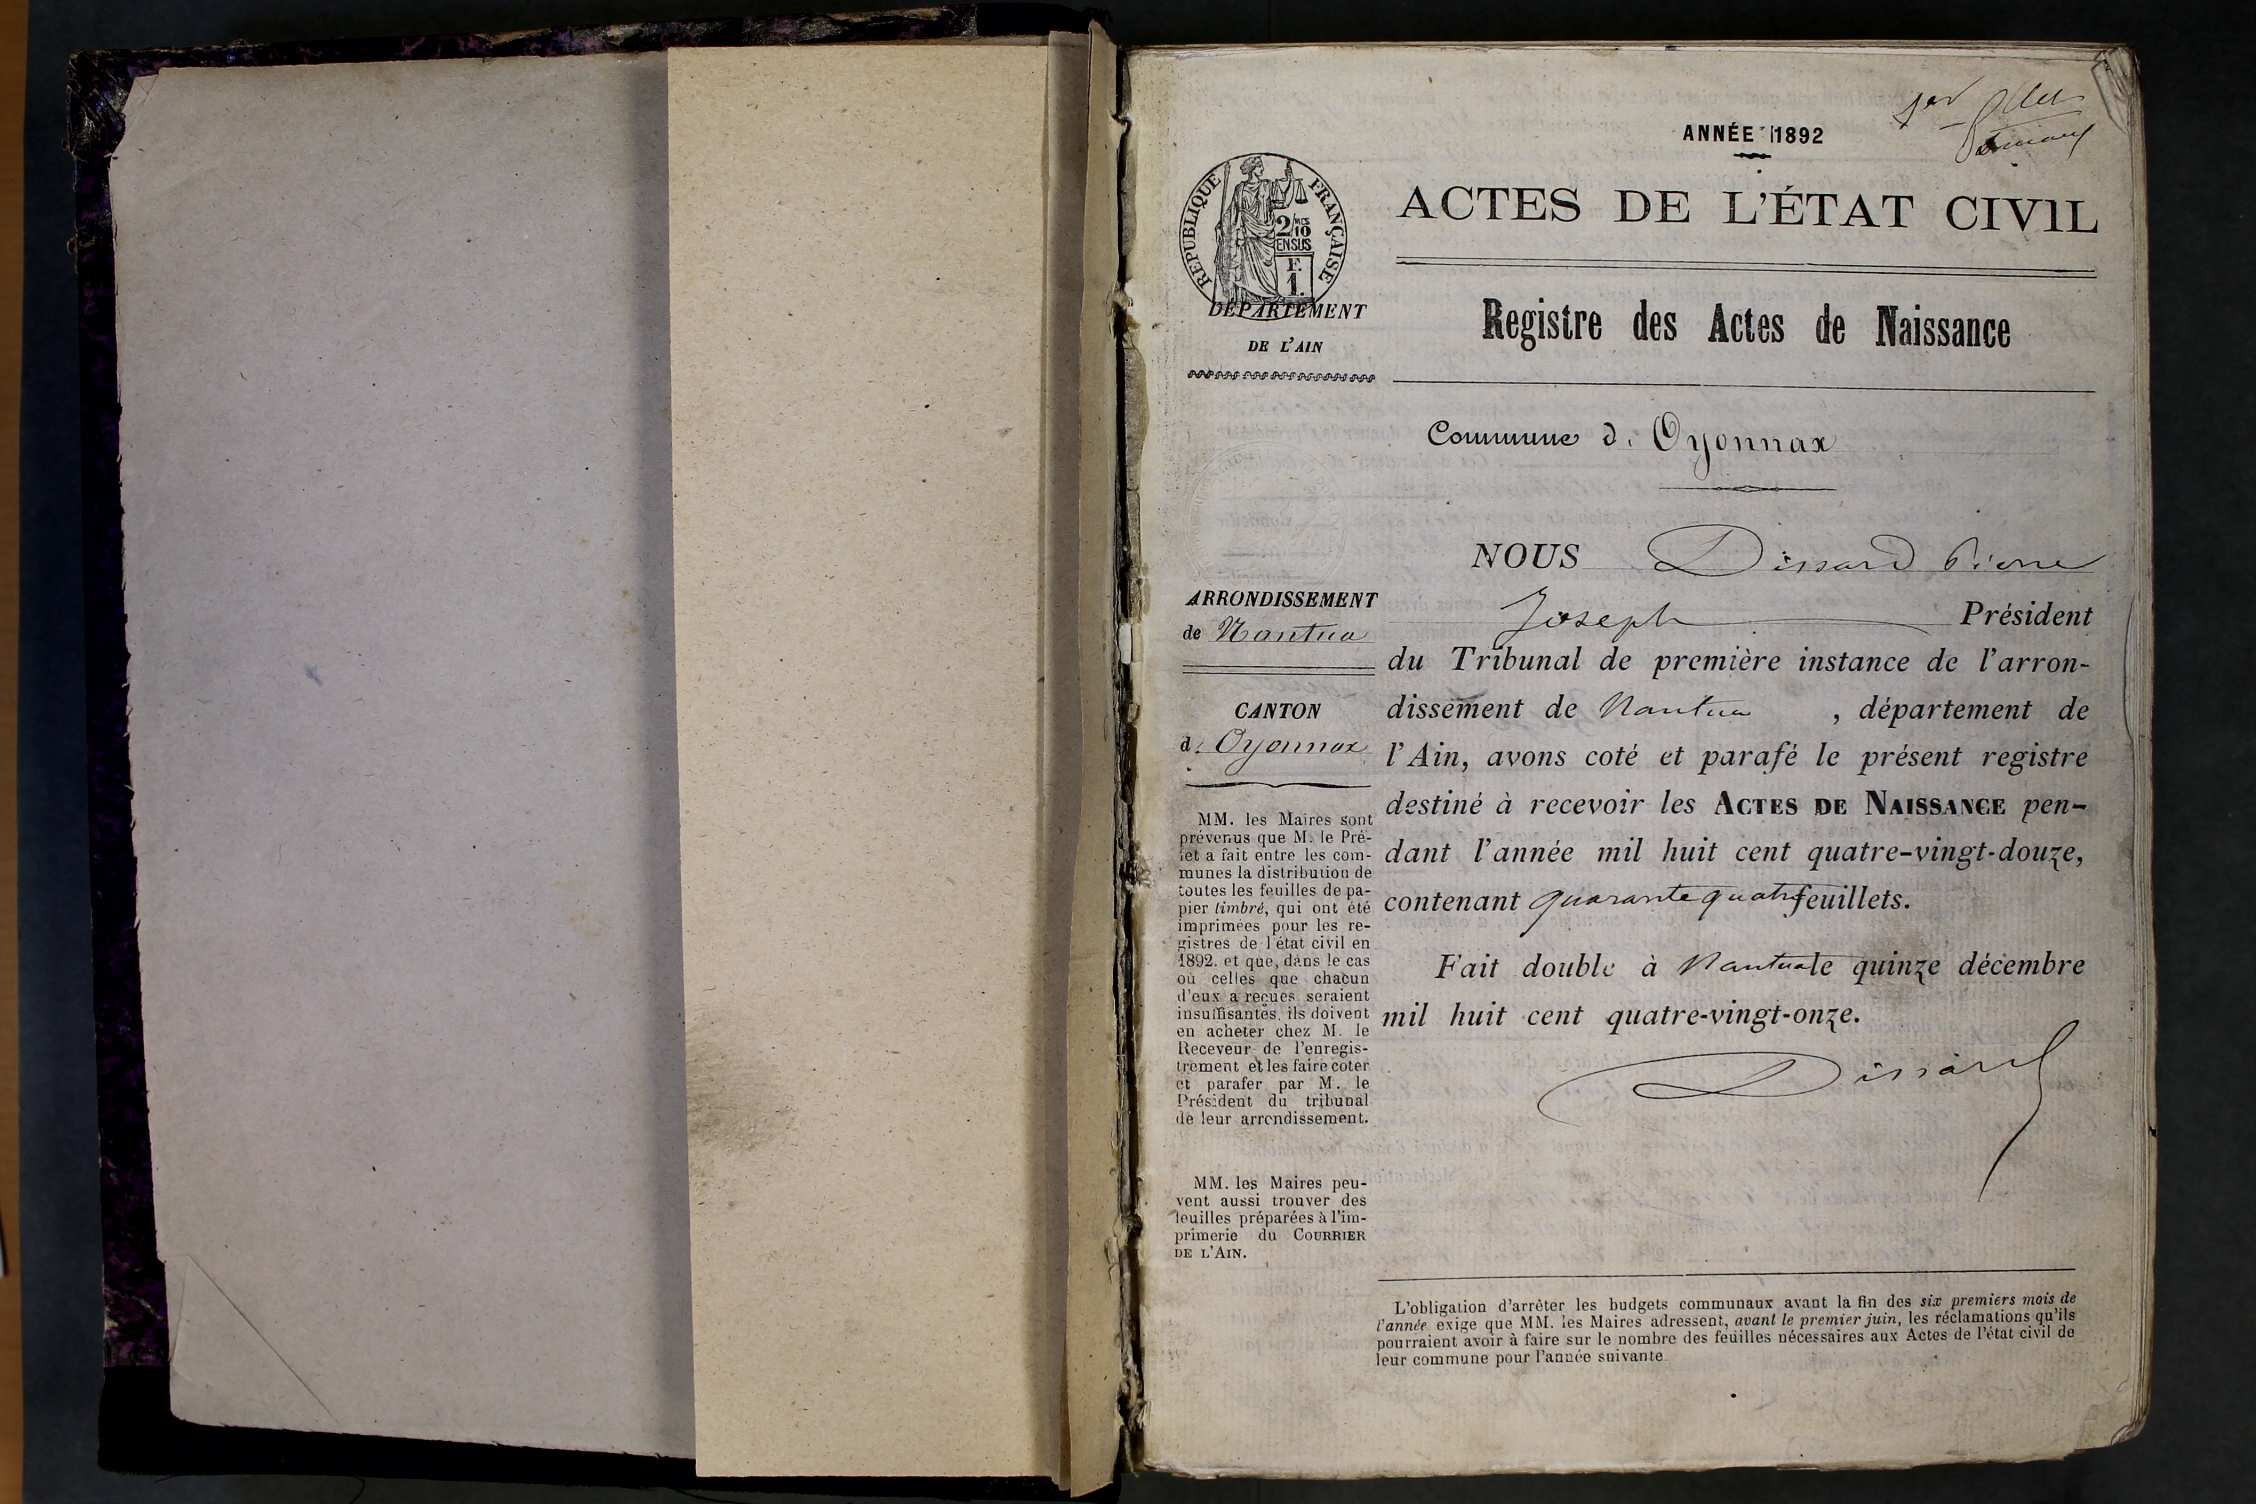 1er
ANNÉE 1892
ACTES DE L'ÉTAT CIVIL
RÉPUBLIQUE FRANÇAISE
2/10
MES
EN SUS
F.
1.
DÉPARTEMENT
DE L'AIN
Registre des Actes de Naissance
Commune d. Oyonnax
ARRONDISSEMENT
de Nantua
CANTON
d. Oyonnax
MM. les Maires sont
prévenus que M. le Pré-
fet a fait entre les com-
munes la distribution de
toutes les feuilles de pa-
pier timbré, qui ont été
imprimées pour les re-
gistres de l'état civil en
1892. et que, dans le cas
où celles que chacun
d'eux a reçues seraient
insuffisantes, ils doivent
en acheter chez M. le
Receveur de l'enregis-
trement et les faire coter
et parafer par M. le
Président du tribunal
de leur arrondissement.
MM. les Maires peu-
vent aussi trouver des
feuilles préparées à l'im-
primerie du COURRIER
DE L'AIN.
NOUS Dissard Pierre
Joseph Président
du Tribunal de première instance de l'arron-
dissement de Nantua , département de
l'Ain, avons coté et parafé le présent registre
destiné à recevoir les ACTES DE NAISSANCE pen-
dant l'année mil huit cent quatre-vingt-douze,
contenant quarante quatre feuillets.
Fait double à Nantua le quinze décembre
mil huit cent quatre-vingt-onze.
Dissard
L'obligation d'arrêter les budgets communaux avant la fin des six premiers mois de
l'année exige que MM. les Maires adressent, avant le premier juin, les réclamations qu'ils
pourraient avoir à faire sur le nombre des feuilles nécessaires aux Actes de l'état civil de
leur commune pour l'année suivante